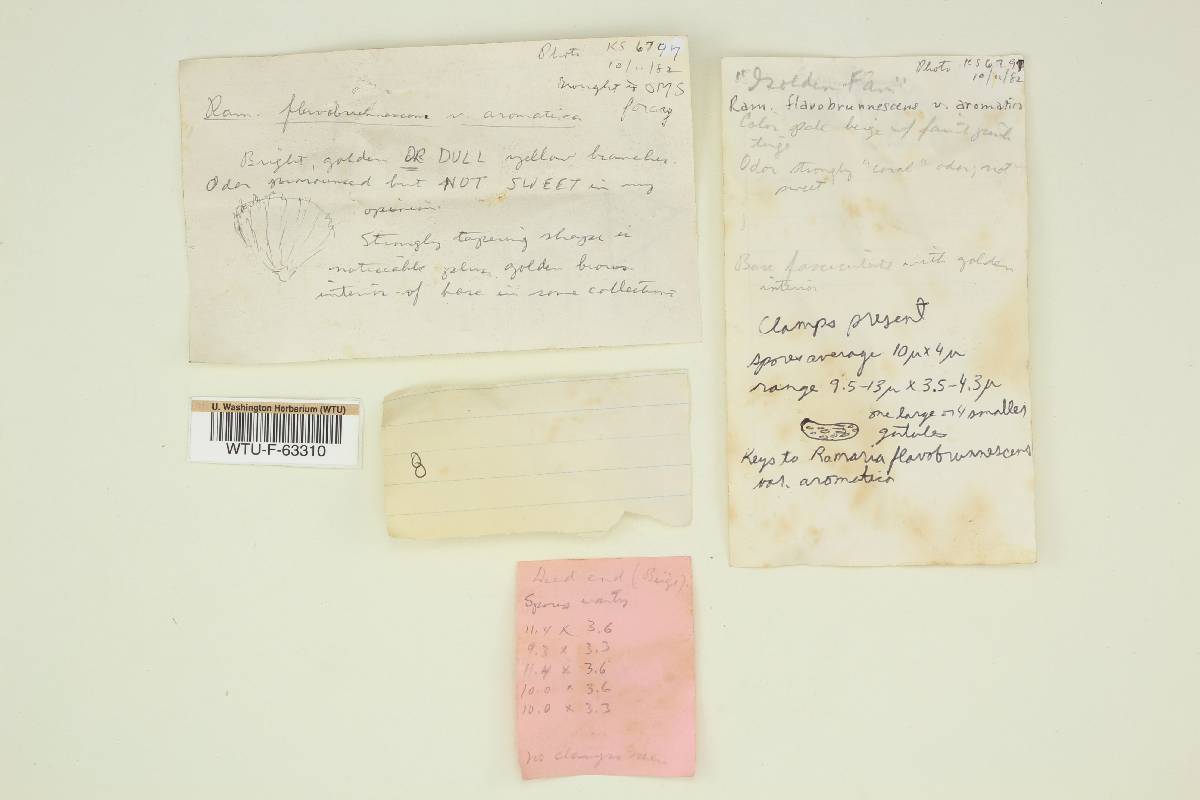 Photo KS 6797
10/11/82
Brought to OMS
foray
Ram. flavobrunnescens v. aromatica
Bright, golden OR DULL yellow branches.
Odor pronounced but NOT SWEET in my
opinion.
Strongly tapering shape is
noticeable plus golden brown
interior of base in some collections
U. Washington Herbarium (WTU)
WTU-F-63310
8
Photo KS 6797
10/11/82
"Golden Fan"
Ram. flavobrunnescens v. aromatica
Color pale beige w/ faint pink
tinge
Odor strongly "coral" odor, not
sweet
Base fasciculate with golden
interior
Clamps present
spores average 10µ x 4µ
range 9.5-13µ x 3.5-4.3µ
one large or 4 smaller
gutules
Keys to Ramaria flavobrunnescens
var. aromatica
Dead end (Beige)
Spores warty
11.4 x 3.6
9.3 x 3.3
11.4 x 3.6
10.0 x 3.6
10.0 x 3.3
No clamps seen